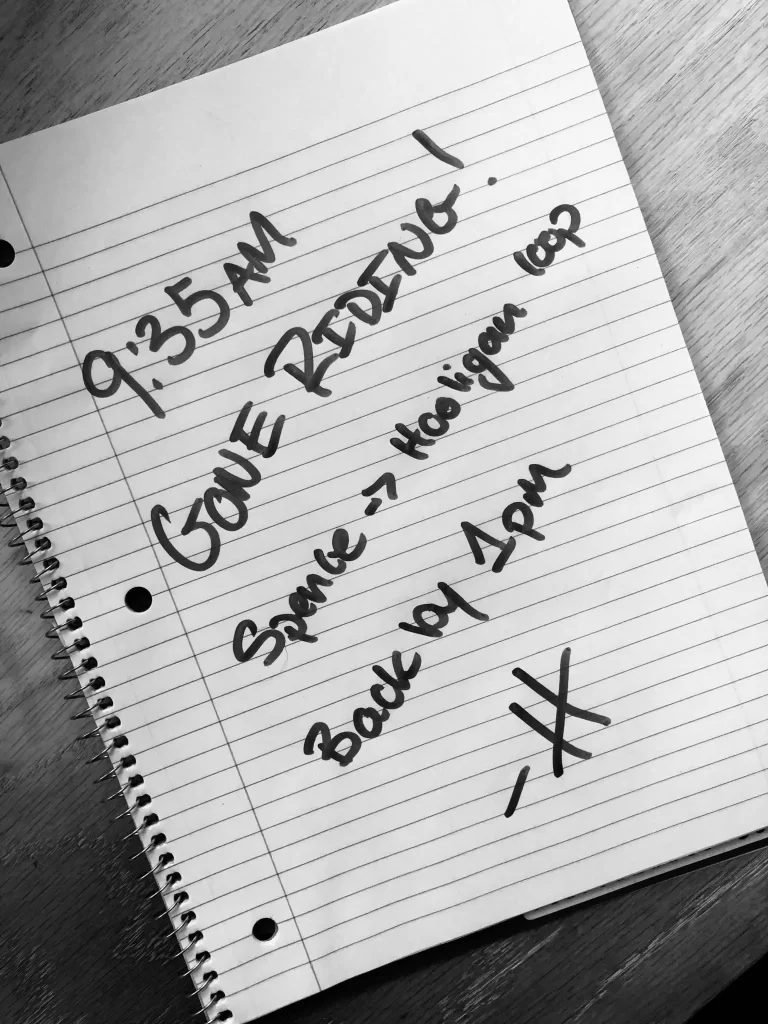 9:35AM
GONE RIDING!
Spence -> Hooligan loop
Back by 1pm
-H